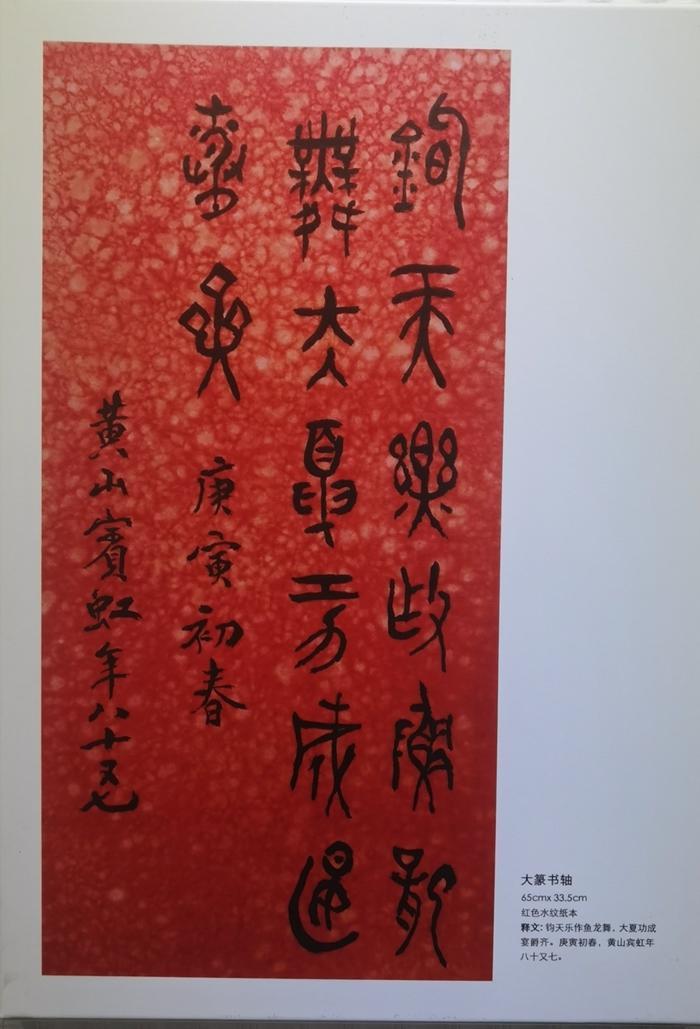 鈞天樂作魚龍
舞大夏功成宴
爵齊
庚寅初春
黃山賓虹年八十又七
大篆书轴
65cmx 33.5cm
红色水纹纸本
释文：钧天乐作鱼龙舞，大夏功成
宴爵齐。庚寅初春，黄山宾虹年
八十又七。